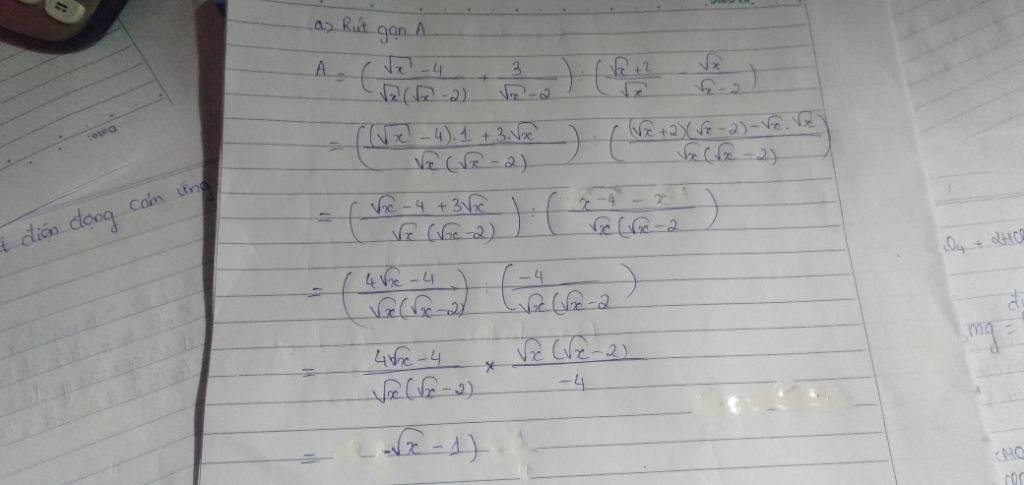 a) Rút gọn A
A = ( (√x - 4)/(√x(√x - 2)) + 3/(√x - 2) ) : ( (√x + 2)/√x - √x/(√x - 2) )
= ( ((√x - 4).1 + 3.√x)/(√x(√x - 2)) ) : ( ((√x + 2)(√x - 2) - √x.√x)/(√x(√x - 2)) )
= ( (√x - 4 + 3√x)/(√x(√x - 2)) ) : ( (x - 4 - x)/(√x(√x - 2 )
= ( (4√x - 4)/(√x(√x - 2)) ) : ( -4/(√x(√x - 2 )
= (4√x - 4)/(√x(√x - 2)) × (√x(√x - 2))/-4
= -√x - 1)
Date:
điện động cảm ứng
O4 + 2HCl
mg =